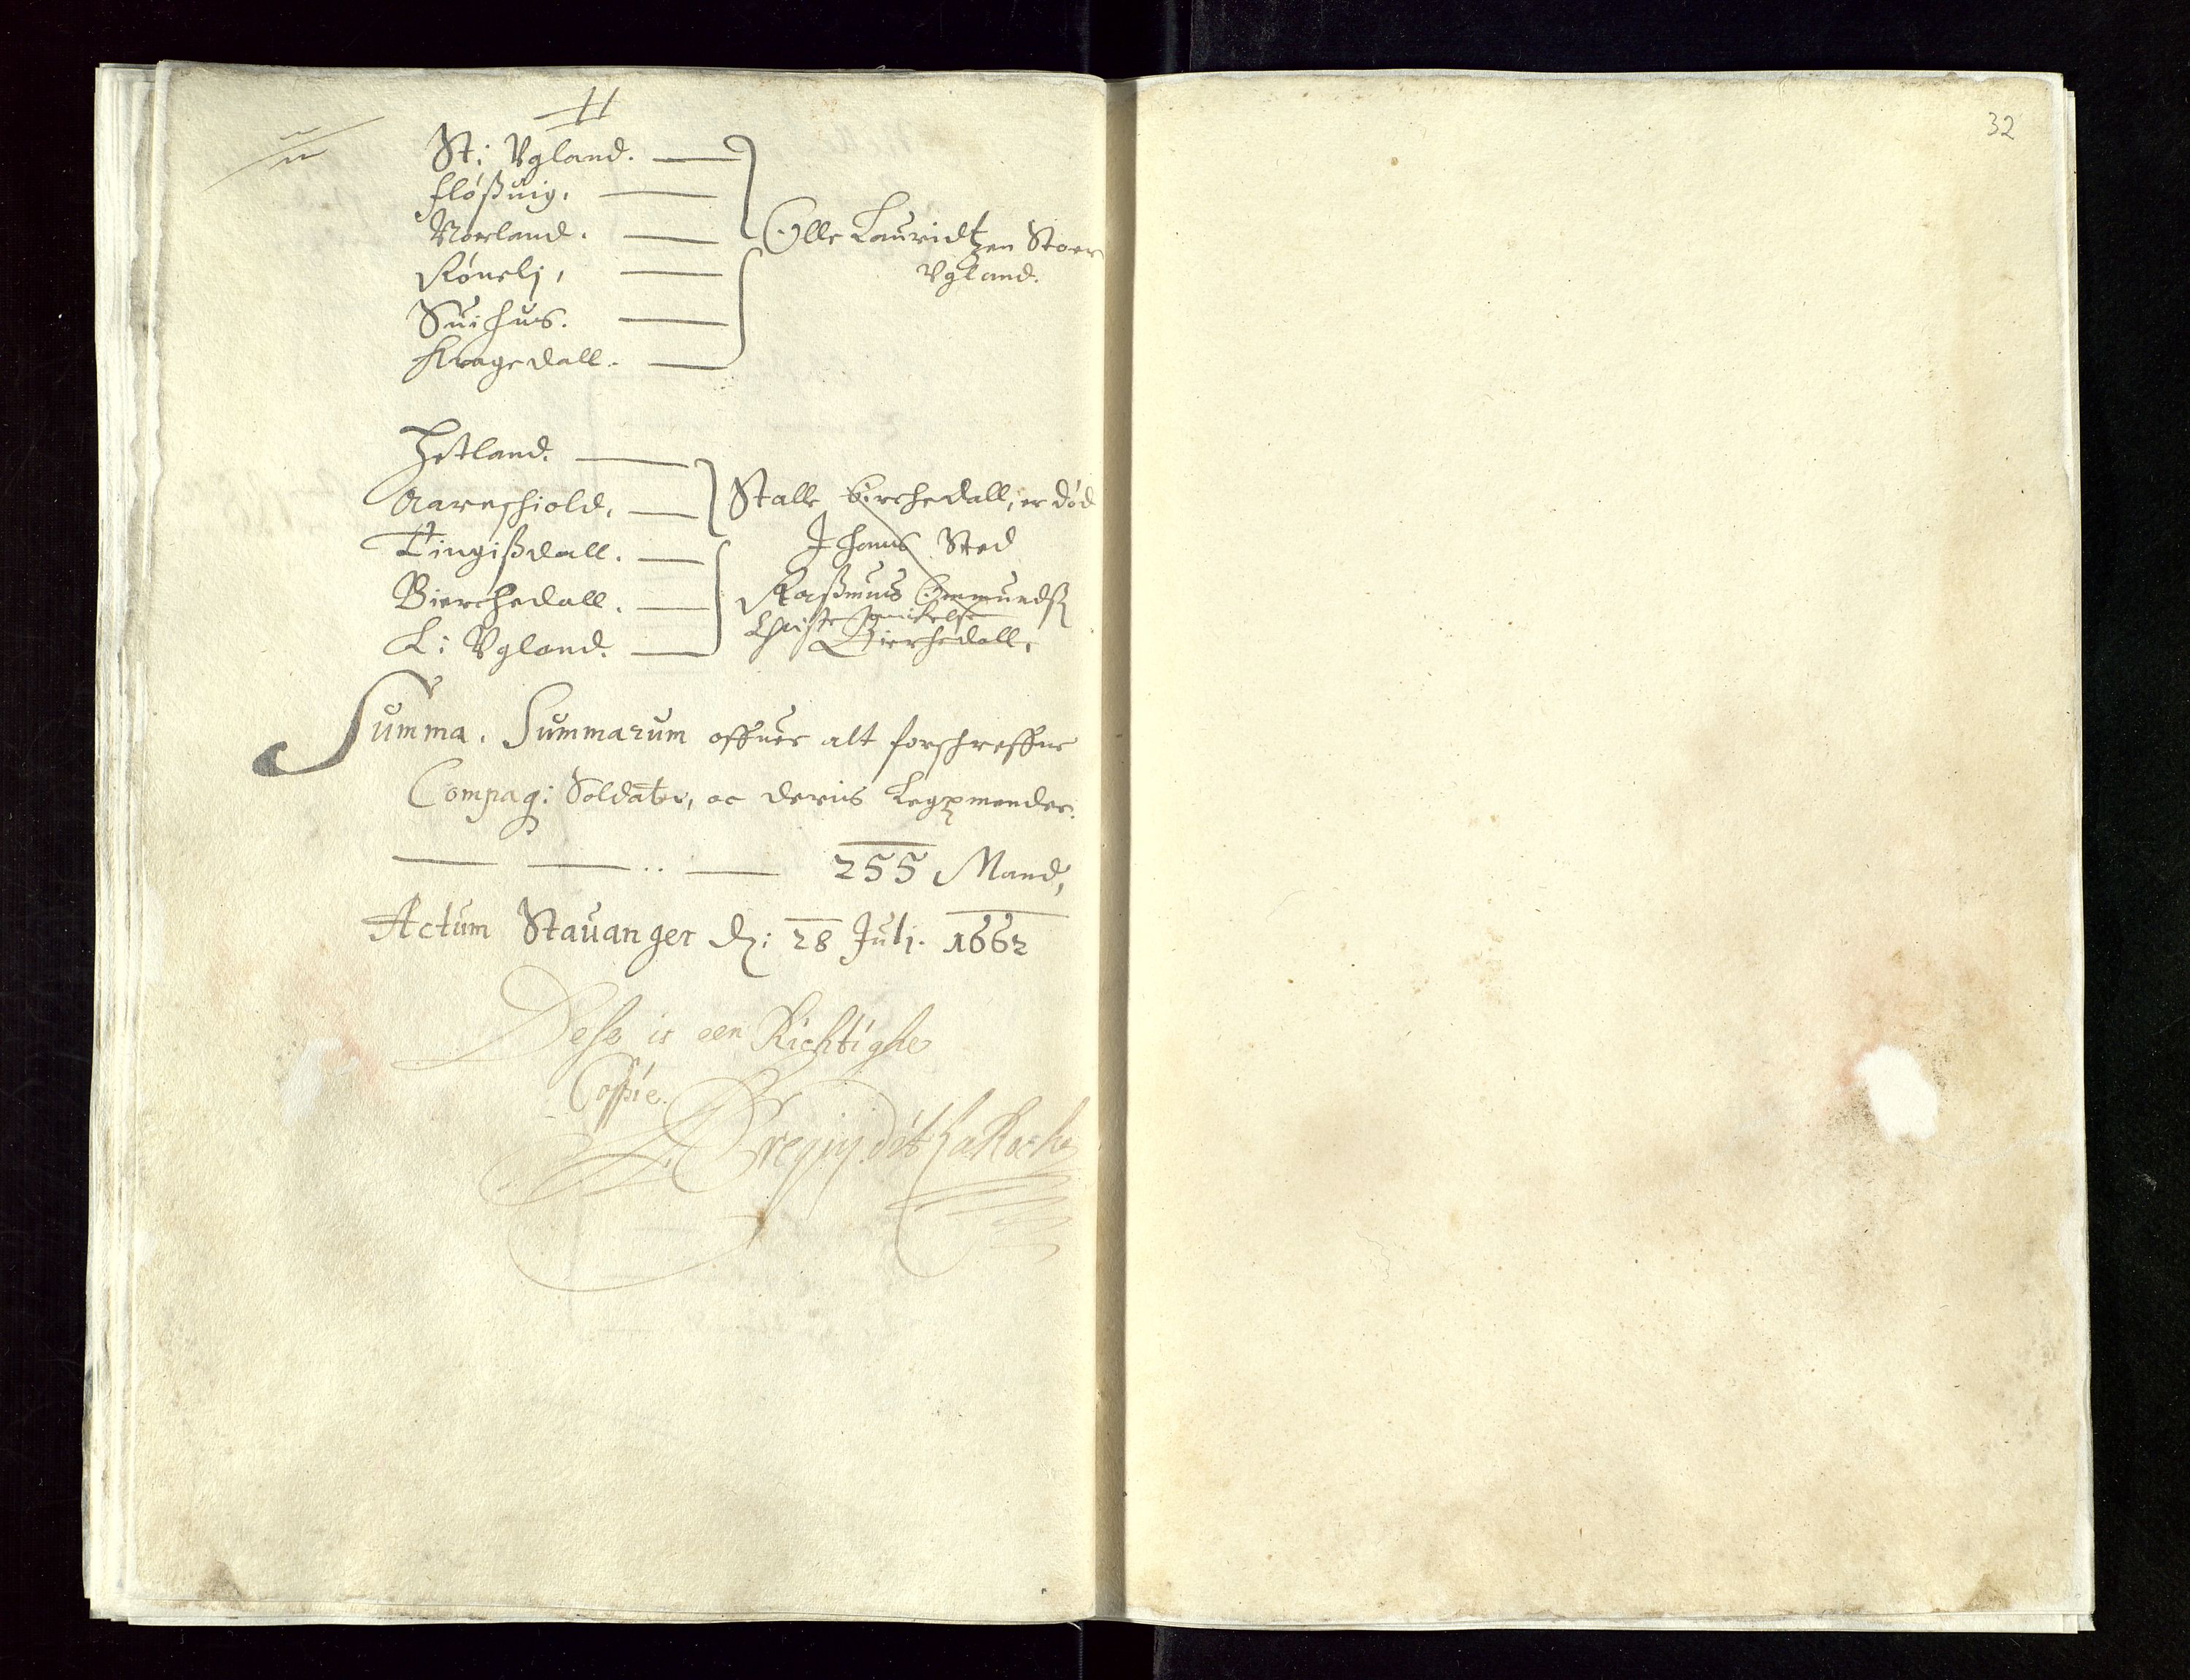 32
St: Vgland.
Flößuig.
Norland.
Rönelj,
Suihus.
Kragedall.
Olle Lauridtzen Stoer
Vgland.
Hetland.
Aareschiold.
Tingißdall.
Bierchedall.
L: Vgland.
Stalle Birchedall, er död
J hans Sted
Raßmus Ommundß
Christe
Bierchedall.
Summa. Summarum offuer alt forschreffne
Compag: Soldater, oc deris Legzmender.
255 Mand,
Actum Stauanger dz: 28 Julj. 1662
Dese is een Richtighe
Coppie.